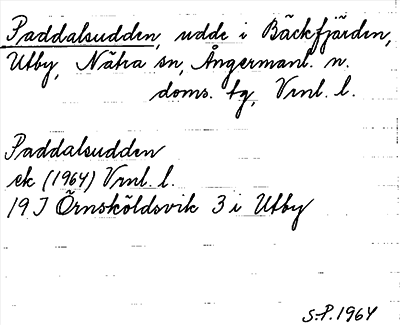 Paddalsudden, udde i Bäckfjärden,
Utby, Nätra sn, Ångermanl. n.
doms. tg, Vrnl. l.
Paddalsudden
ek (1964) Vrnl. l.
19 J Örnsköldsvik 3 i Utby
S.P. 1964